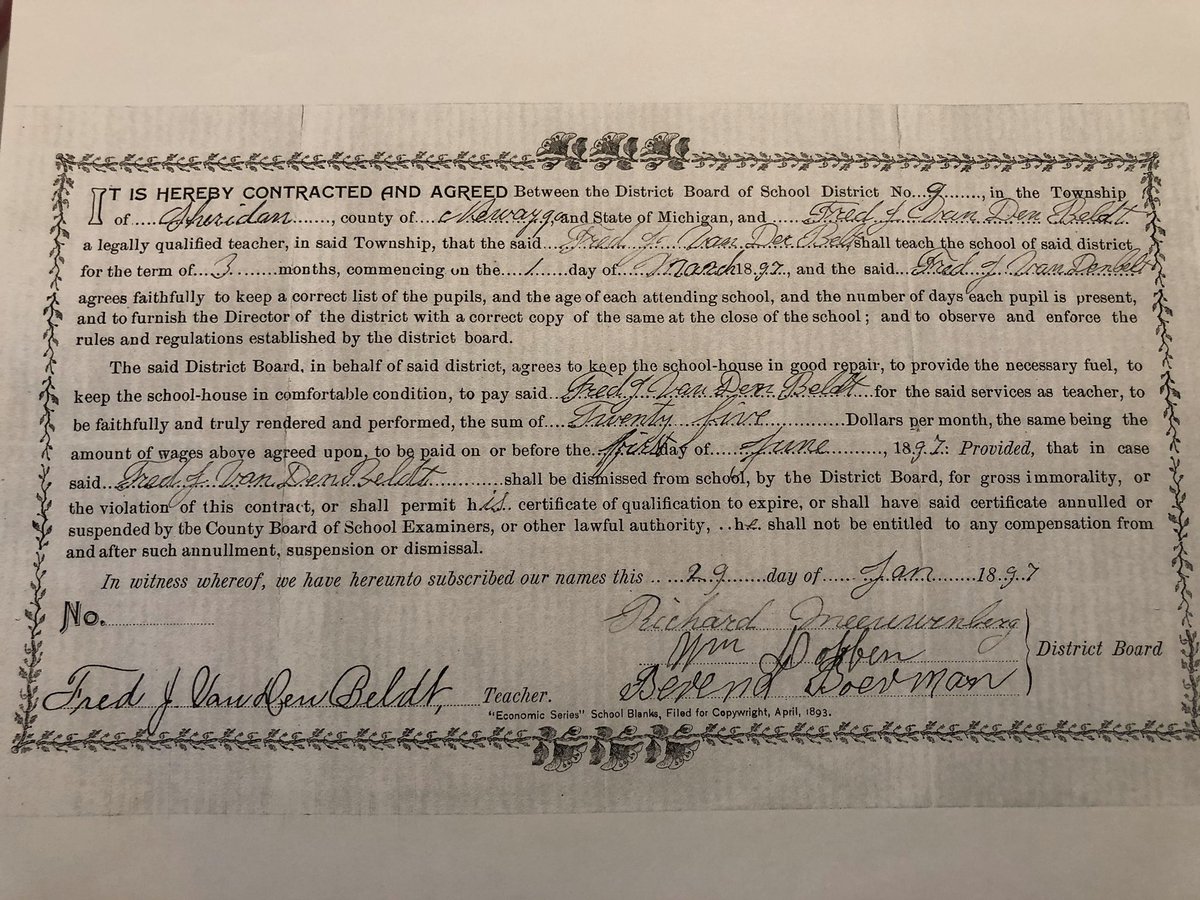 IT IS HEREBY CONTRACTED AND AGREED Between the District Board of School District No. 9, in the Township
of Sheridan, county of Newaygo and State of Michigan, and Fred J Van Den Beldt
a legally qualified teacher, in said Township, that the said Fred J Van Der Belt shall teach the school of said district
for the term of 3 months, commencing on the 1 day of March 1897, and the said Fred J Van Denbelt
agrees faithfully to keep a correct list of the pupils, and the age of each attending school, and the number of days each pupil is present,
and to furnish the Director of the district with a correct copy of the same at the close of the school; and to observe and enforce the
rules and regulations established by the district board.
The said District Board, in behalf of said district, agrees to keep the school-house in good repair, to provide the necessary fuel, to
keep the school-house in comfortable condition, to pay said Fred J Van Den Beldt for the said services as teacher, to
be faithfully and truly rendered and performed, the sum of Twenty five Dollars per month, the same being the
amount of wages above agreed upon, to be paid on or before the first day of June, 1897: Provided, that in case
said Fred J Van Den Beldt shall be dismissed from school, by the District Board, for gross immorality, or
the violation of this contract, or shall permit his certificate of qualification to expire, or shall have said certificate annulled or
suspended by the County Board of School Examiners, or other lawful authority, he shall not be entitled to any compensation from
and after such annullment, suspension or dismissal.
In witness whereof, we have hereunto subscribed our names this 29 day of Jan 1897
No.
Richard Meeuwenberg
Wm Dobben
Berend Boerman
District Board
Fred J Van Den Beldt, Teacher.
"Economic Series" School Blanks, Filed for Copyright, April, 1893.